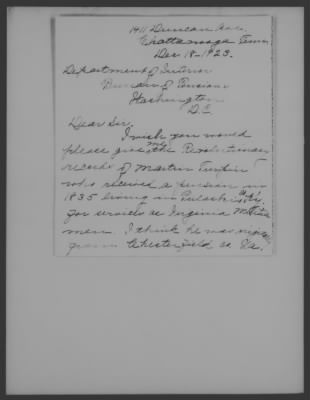 1411 Duncan Ave.
Chattanooga Tenn
Dec 18-1923.
Department of Interior
Bureau of Pensions
Washington
D.C
Dear Sir.
I wish you would
please give me the Revolutionary
records of Martin Turpin
who received a pension in
1835 living in Pulaski Co
for services as Virginia Militia
man. I think he was
from Chesterfield co Va.